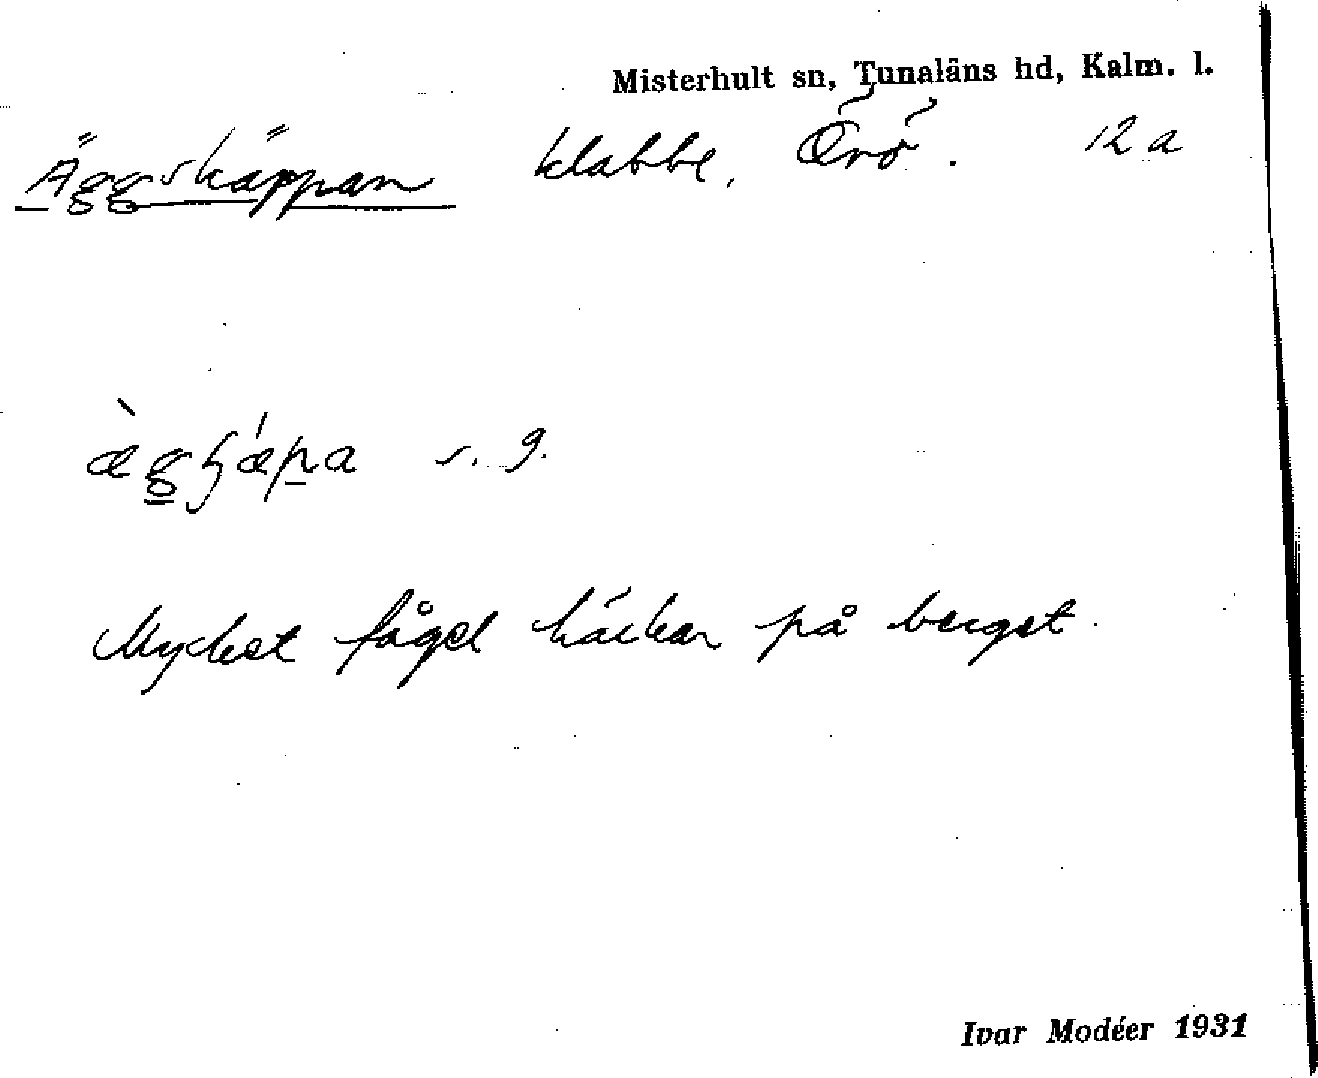 Misterhult sn, Tunaläns hd, Kalm. l.
Äggskäppan klabbe, Örö. 12 a
s. g.
Mycket fågel häckar på berget.
Ivar Modéer 1931